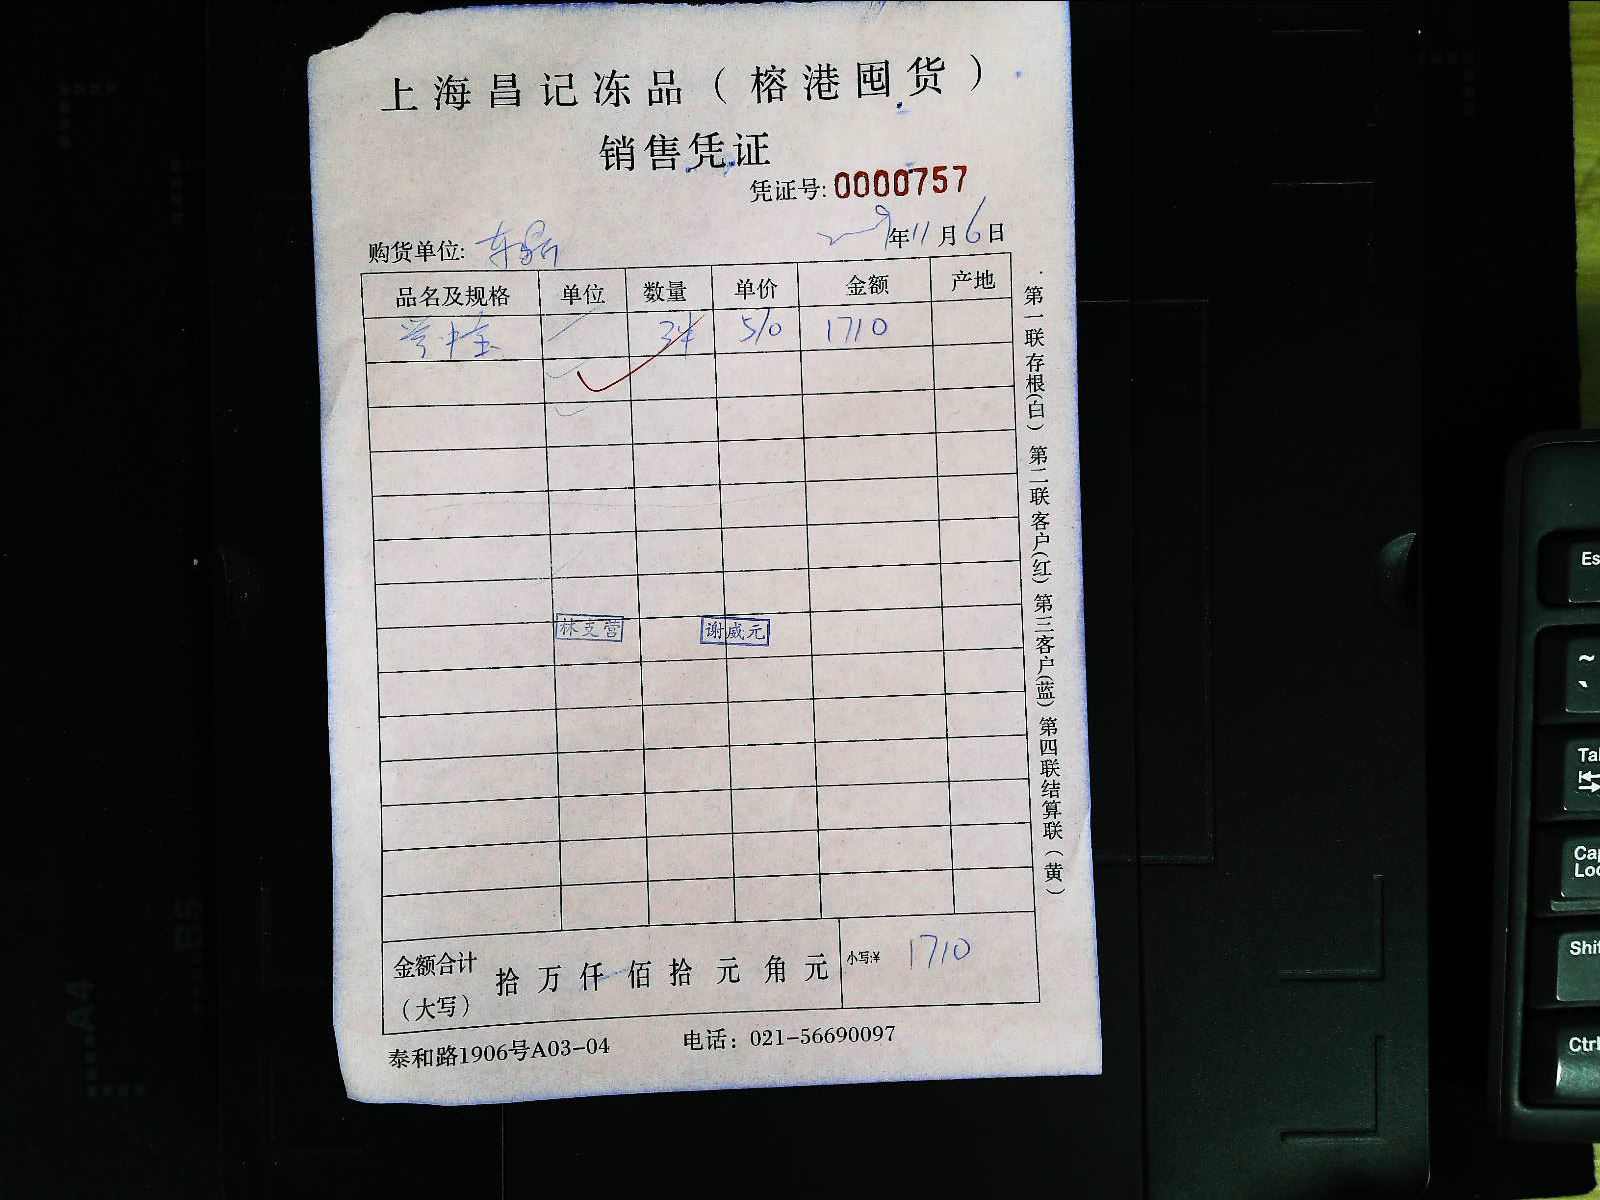 上海昌记冻品（榕港囤货）
销售凭证
凭证号: 0000757
购货单位:
年11月6日
品名及规格 单位 数量 单价 金额 产地
1710
林支营 谢威元
金额合计（大写） 拾万仟佰拾元角元 小写:¥ 1710
泰和路1906号A03-04 电话：021-56690097
第一联存根(白) 第二联客户(红) 第三客户(蓝) 第四联结算联（黄）
Es
~
`
Ta
Ca
Loc
Shi
Ctrl
A4
B5